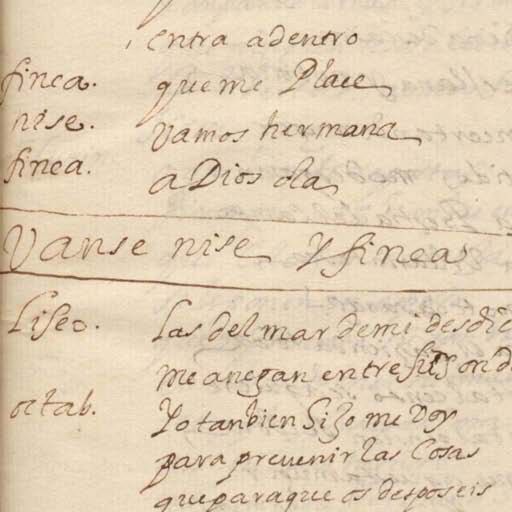 entra adentro
finea. que me Place
nise. Vamos hermana
finea. a Dios ola
Vanse nise y finea
Liseo. Las del mar de mi desdic
me anegan entre sus ond
octab. Yo tanbien hijo me voy
para prevenir las Cosas
que para que os desposeis